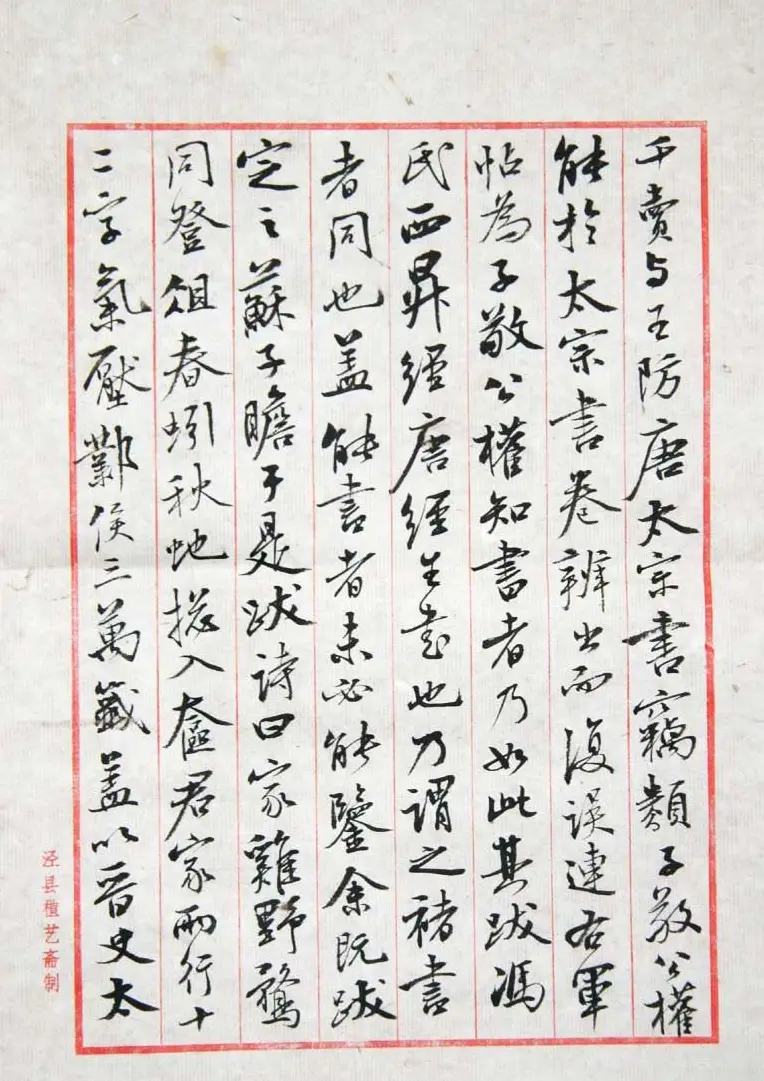 千賣与王防唐太宗書竊類子敬公權
能於太宗書卷辨出而復誤連右軍
帖為子敬公權知書者乃如此其跋馮
氏西昇經唐經生書也乃謂之褚書
者同也盖能書者未必能鑒余既跋
定之蘇子瞻于是跋詩曰家雞野鶩
同登俎春蚓秋虵揔入奩君家兩行十
二字氣壓鄴侯三萬籤盖以晋史太
泾县植艺斋制